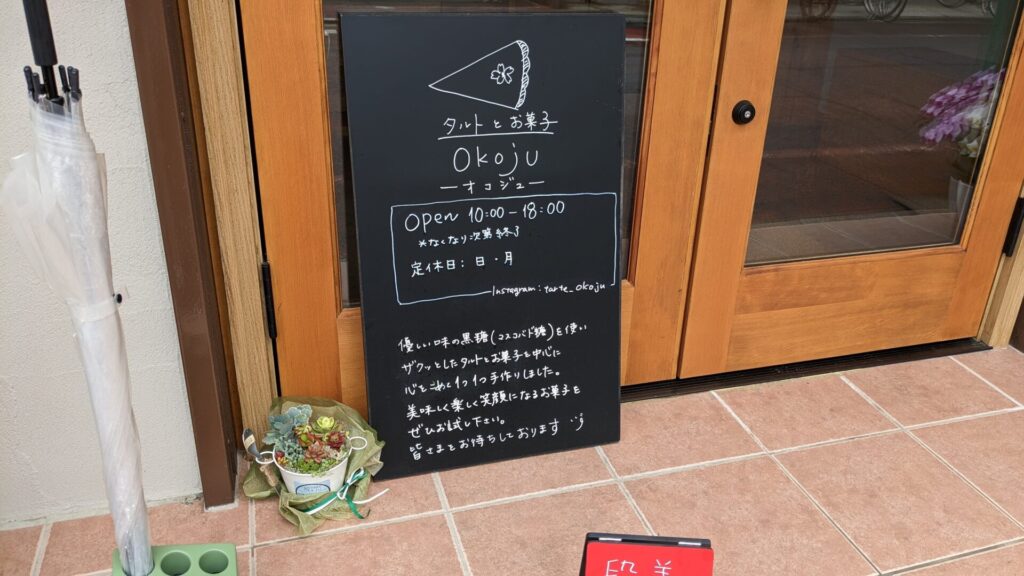 タルトとお菓子
Okoju
ーオコジュー
Open 10:00-18:00
*なくなり次第終了
定休日: 日・月
Instagram: tarte_okoju
優しい味の黒糖(コスコバド糖)を使い
ザクッとしたタルトとお菓子を中心に
心をこめて1つ1つ手作りしました。
美味しく楽しく笑顔になるお菓子を
ぜひお試し下さい。
皆さまをお待ちしております
段差